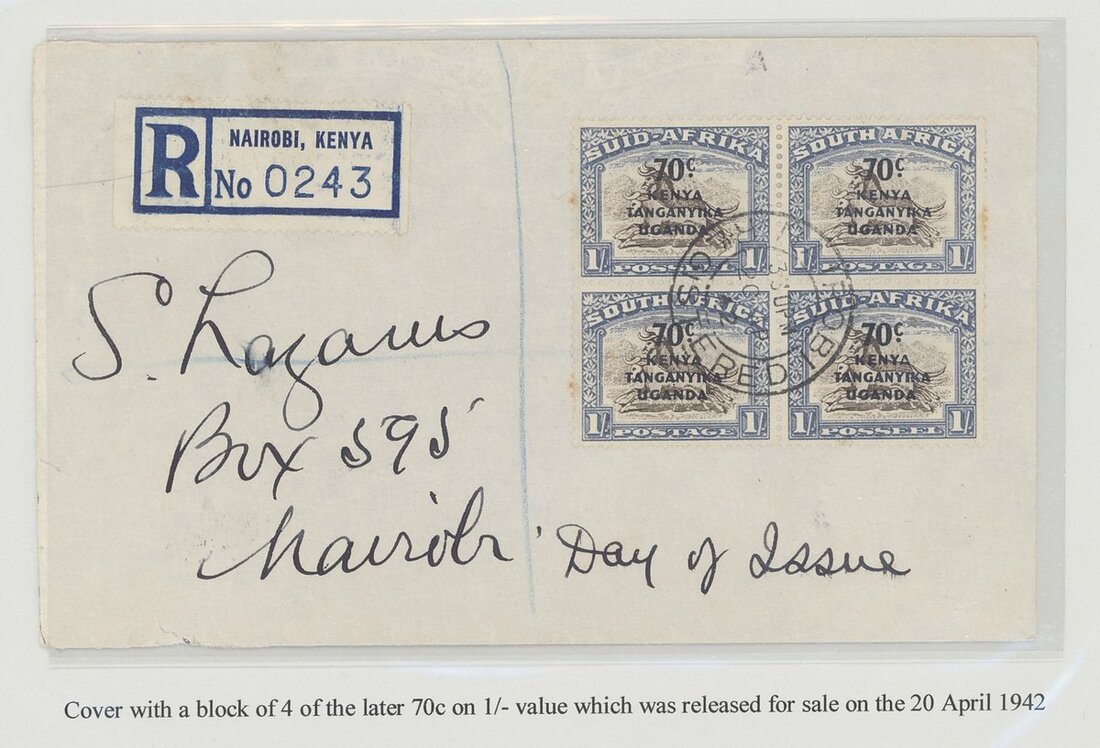 R
NAIROBI, KENYA
No 0243
SUID-AFRIKA
70c
KENYA
TANGANYIKA
UGANDA
1/- POSSEEL 1/-
SOUTH AFRICA
70c
KENYA
TANGANYIKA
UGANDA
1/- POSTAGE 1/-
SOUTH AFRICA
70c
KENYA
TANGANYIKA
UGANDA
1/- POSTAGE 1/-
SUID-AFRIKA
70c
KENYA
TANGANYIKA
UGANDA
1/- POSSEEL 1/-
REGISTERED
S. Lazarus
Box 595
Nairobi
Day of Issue
Cover with a block of 4 of the later 70c on 1/- value which was released for sale on the 20 April 1942